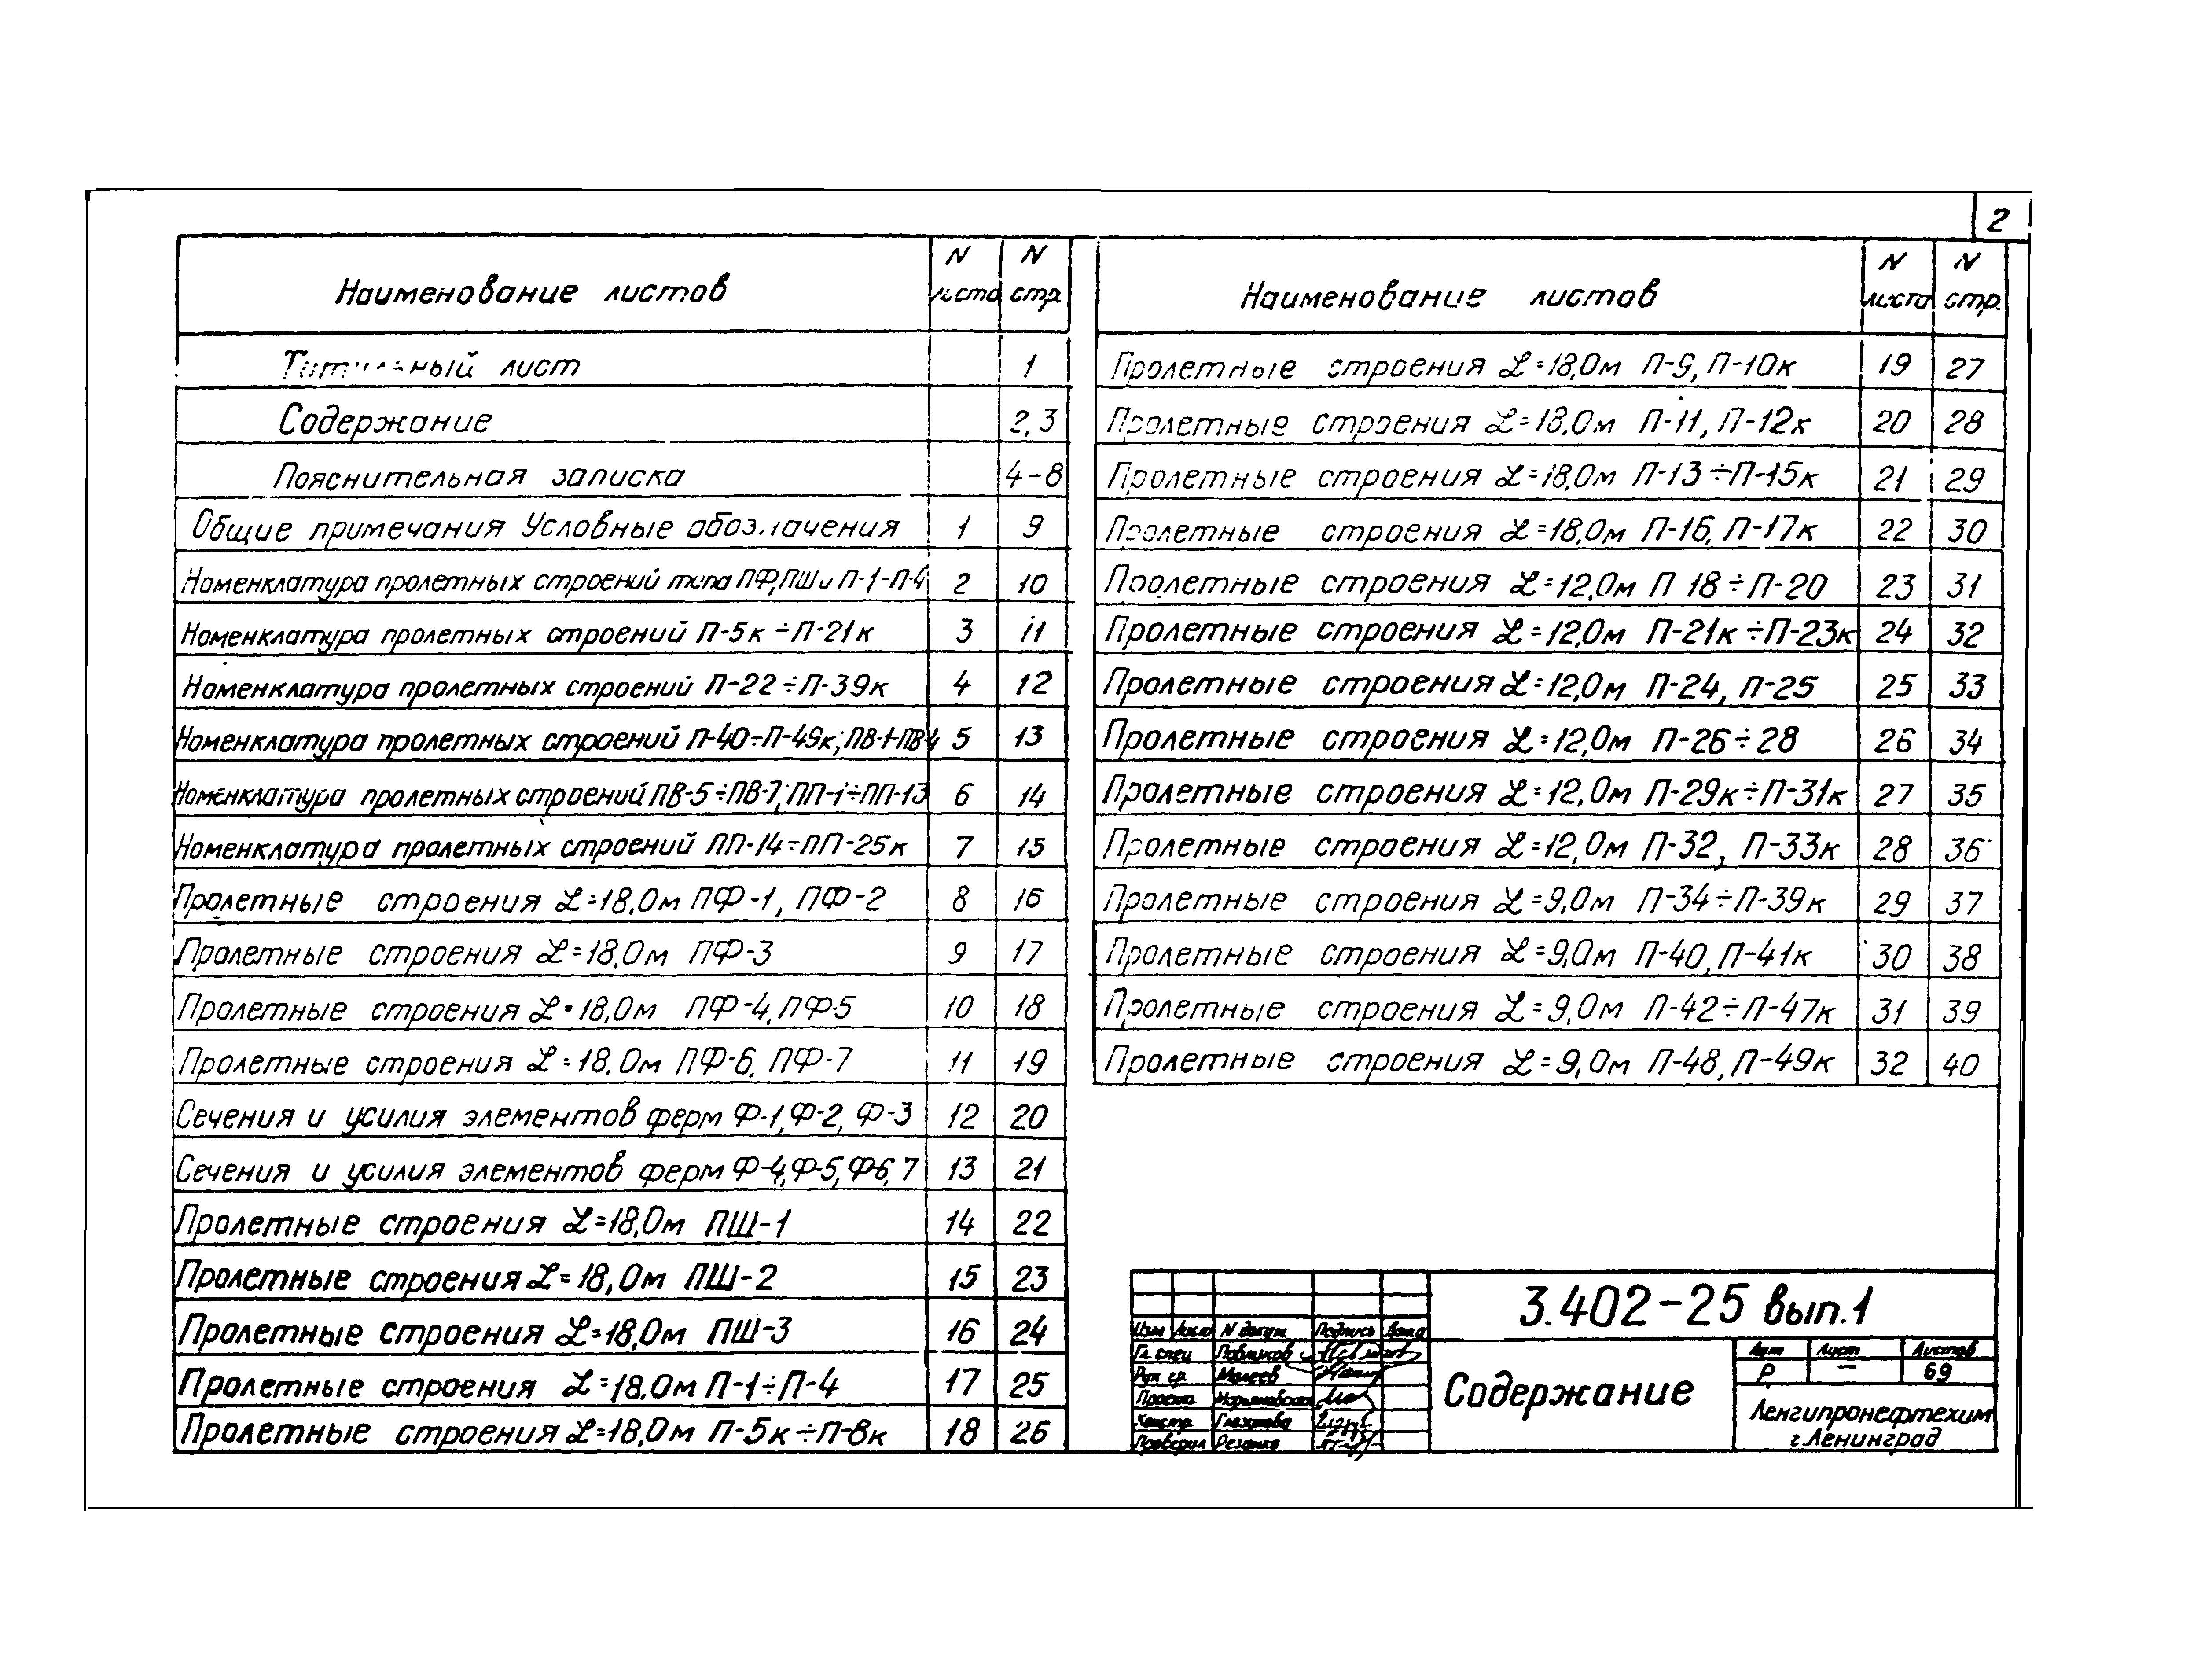 2
Наименование листов N листа N стр.
Титульный лист 1
Содержание 2,3
Пояснительная записка 4-8
Общие примечания Условные обозначения 1 9
Номенклатура пролетных строений типа ПФ,ПШ и П-1-П-4 2 10
Номенклатура пролетных строений П-5к÷П-21к 3 11
Номенклатура пролетных строений П-22÷П-39к 4 12
Номенклатура пролетных строений П-40÷П-49к; ПВ-1-ПВ-4 5 13
Номенклатура пролетных строений ПВ-5÷ПВ-7; ПП-1÷ПП-13 6 14
Номенклатура пролетных строений ПП-14÷ПП-25к 7 15
Пролетные строения L=18,0м ПФ-1, ПФ-2 8 16
Пролетные строения L=18,0м ПФ-3 9 17
Пролетные строения L=18,0м ПФ-4, ПФ-5 10 18
Пролетные строения L=18,0м ПФ-6, ПФ-7 11 19
Сечения и усилия элементов ферм Ф-1, Ф-2, Ф-3 12 20
Сечения и усилия элементов ферм Ф-4, Ф-5, Ф-6, 7 13 21
Пролетные строения L=18,0м ПШ-1 14 22
Пролетные строения L=18,0м ПШ-2 15 23
Пролетные строения L=18,0м ПШ-3 16 24
Пролетные строения L=18,0м П-1÷П-4 17 25
Пролетные строения L=18,0м П-5к÷П-8к 18 26
Наименование листов N листа N стр.
Пролетные строения L=18,0м П-9, П-10к 19 27
Пролетные строения L=18,0м П-11, П-12к 20 28
Пролетные строения L=18,0м П-13÷П-15к 21 29
Пролетные строения L=18,0м П-16, П-17к 22 30
Пролетные строения L=12,0м П 18÷П-20 23 31
Пролетные строения L=12,0м П-21к÷П-23к 24 32
Пролетные строения L=12,0м П-24, П-25 25 33
Пролетные строения L=12,0м П-26÷28 26 34
Пролетные строения L=12,0м П-29к÷П-31к 27 35
Пролетные строения L=12,0м П-32, П-33к 28 36
Пролетные строения L=9,0м П-34÷П-39к 29 37
Пролетные строения L=9,0м П-40, П-41к 30 38
Пролетные строения L=9,0м П-42÷П-47к 31 39
Пролетные строения L=9,0м П-48, П-49к 32 40
3.402-25 вып.1
Изм Лист N докум Подпись Дата
Гл спец Павликов
Рук гр. Малеев
Проверил Резанко
Содержание
Лит Лист Листов
Р — 69
Ленгипронефтехим
г.Ленинград